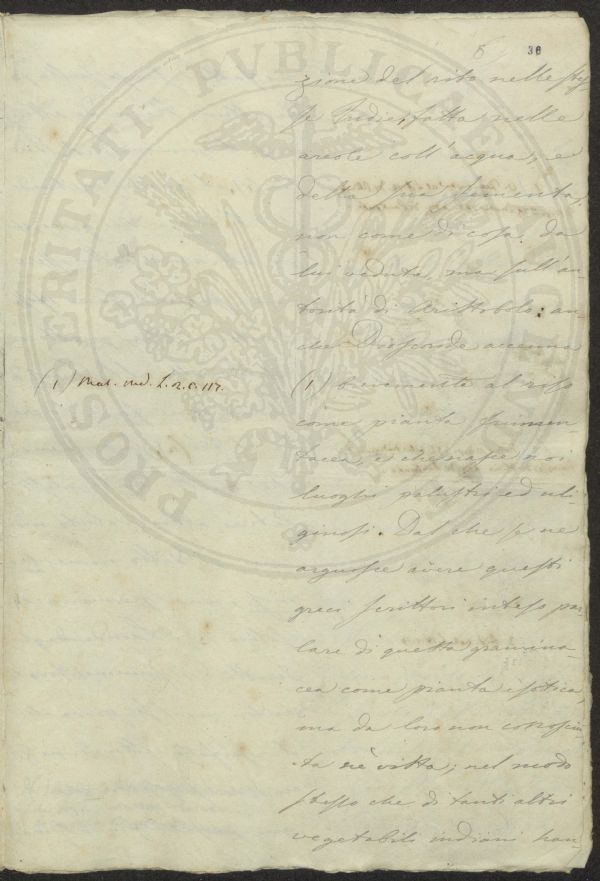 6 36
zione del riso nelle stes
se Indie, fatta nelle
areole coll'acqua, e
della sua sementa,
non come di cosa da
lui veduta, ma sull'au-
torità di Aristobolo: an
che Dioscoride accenna
(1) Mat. Med. L. 2. c. 117.
(1) brevemente al riso
come pianta frumen-
tacea, e che nasce ne
luoghi palustri ed uli
ginosi. Dal che se ne
arguisce avere questi
greci scrittori inteso par
lare di questa gramina-
cea come pianta esotica,
ma da loro non conosciu-
ta nè vista; nel modo
stesso che di tanti altri
vegetabili indiani han
PROSPERITATI PVBLICAE